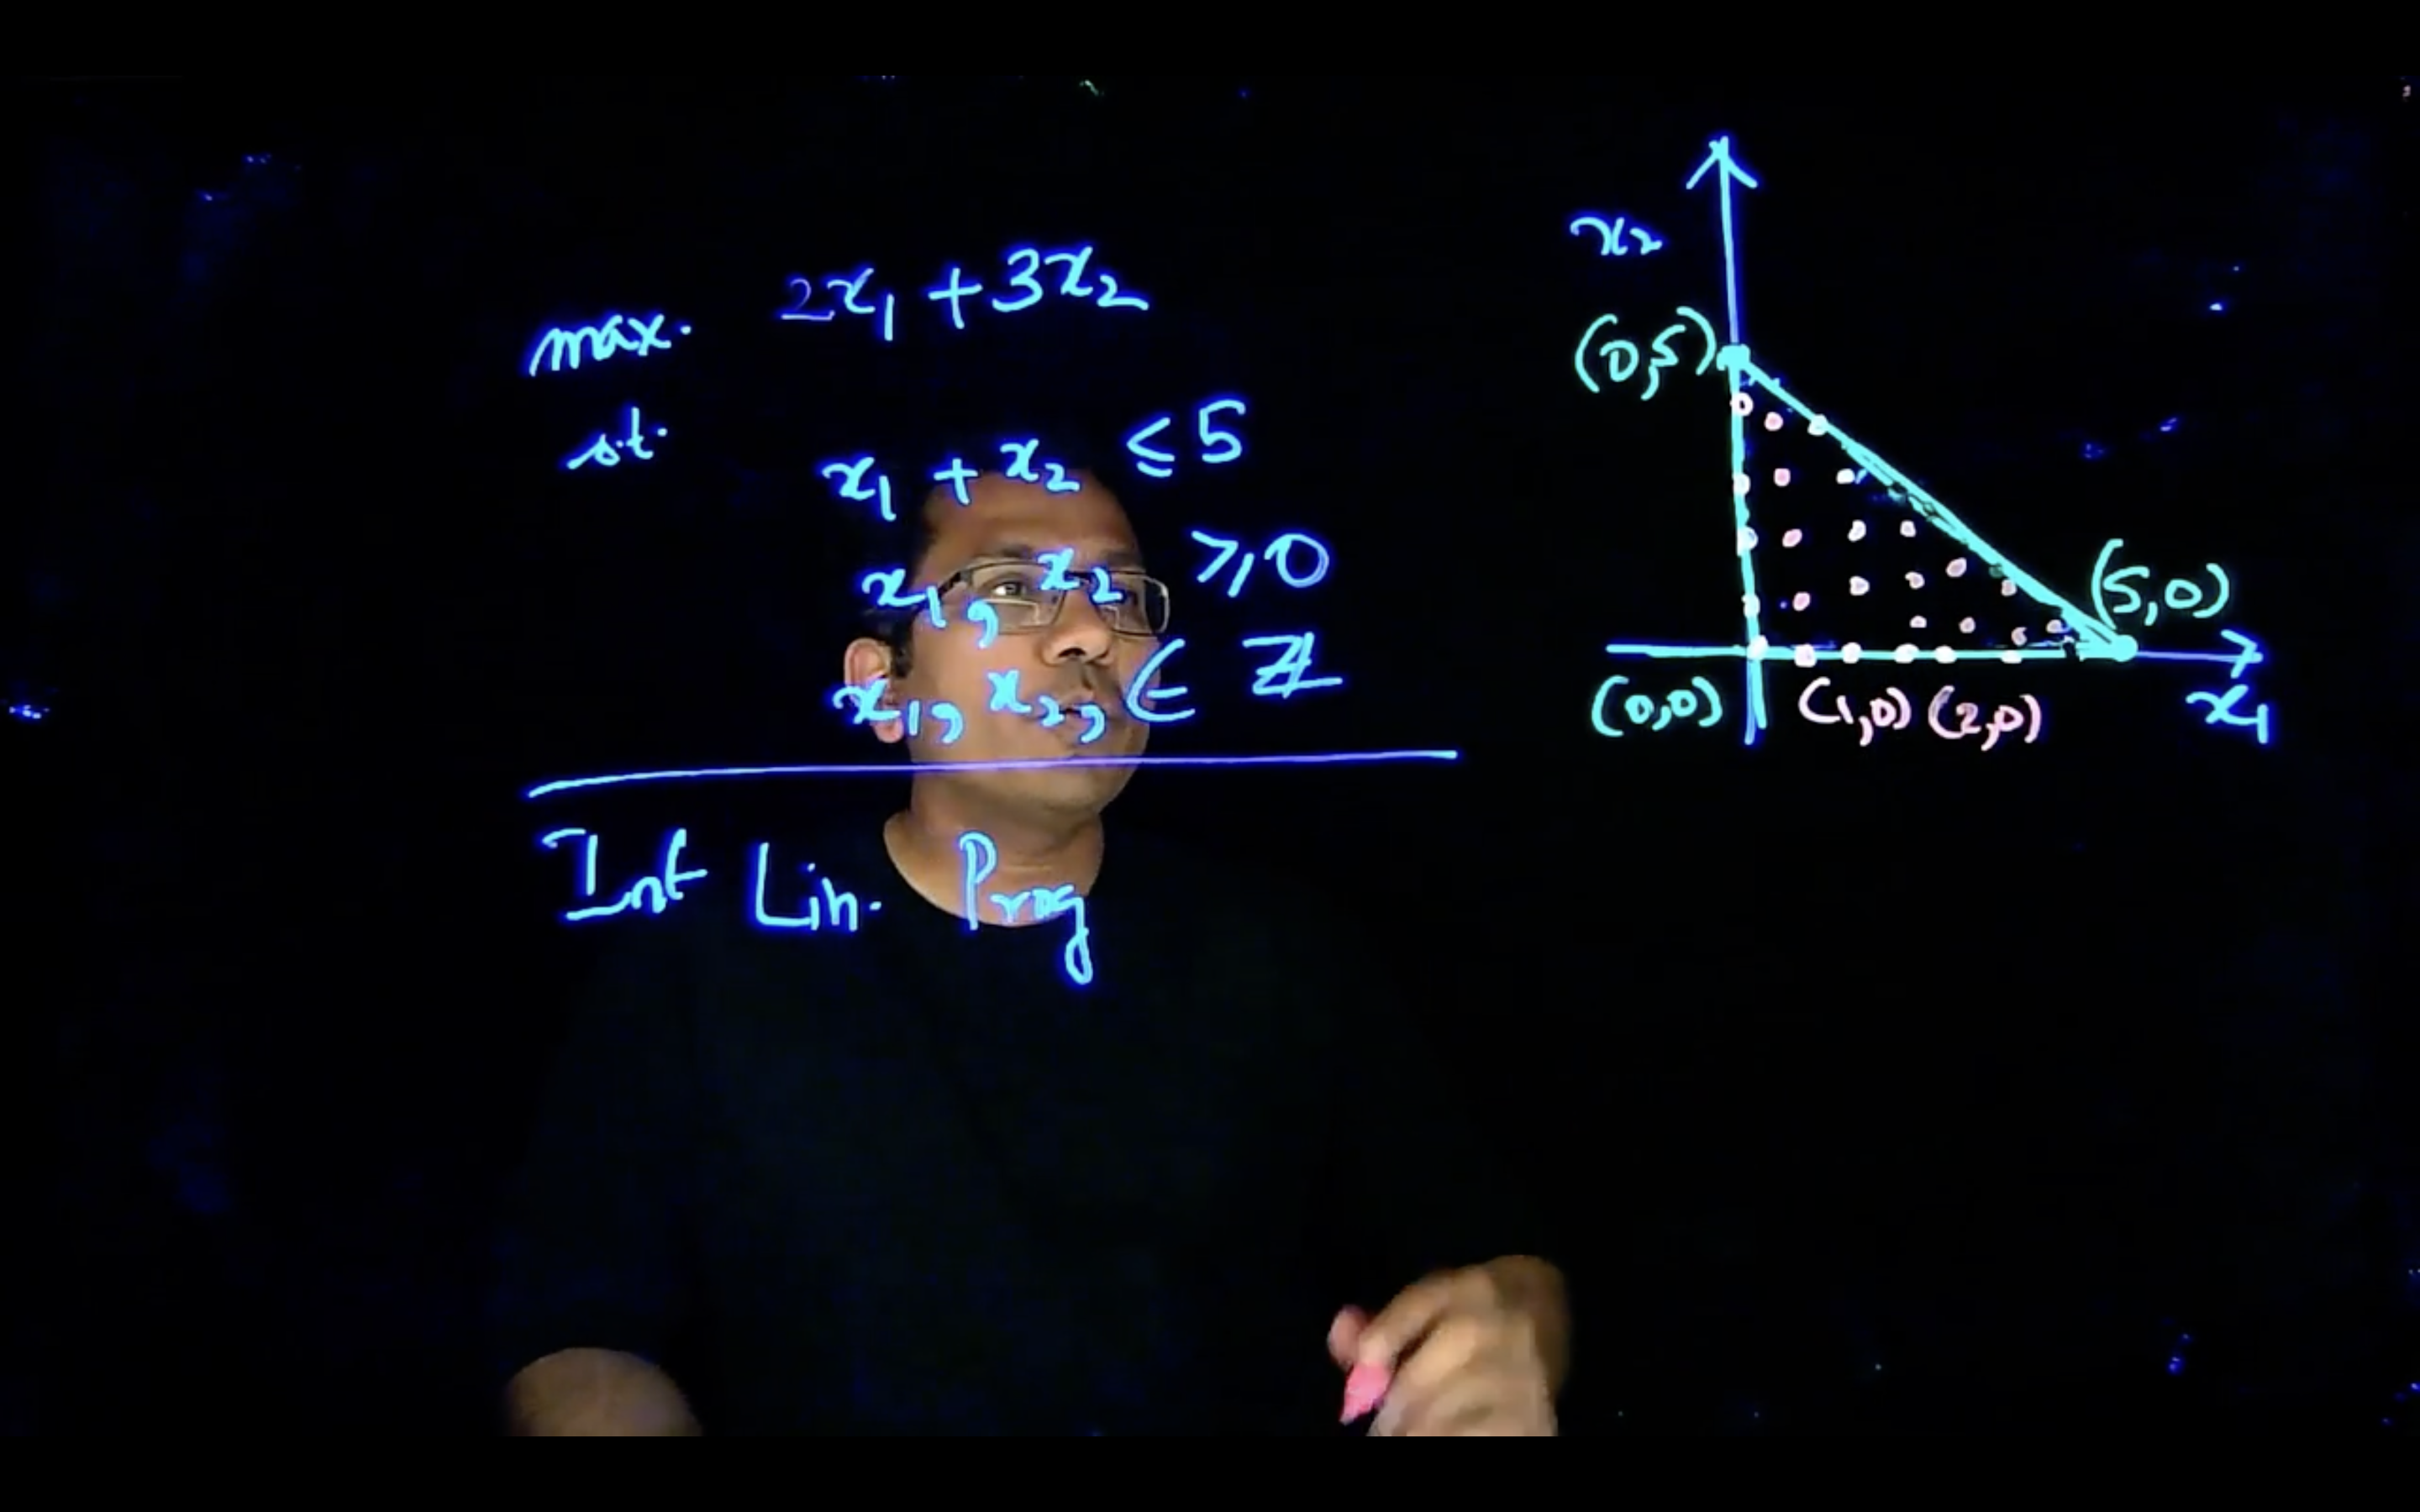 max. 2x₁ + 3x₂
s.t.
x₁ + x₂ ≤ 5
x₁, x₂ ≥ 0
x₁, x₂, ∈ ℤ
Int Lin. Prog
x₂
(0,5)
(5,0)
(0,0) (1,0) (2,0)
x₁